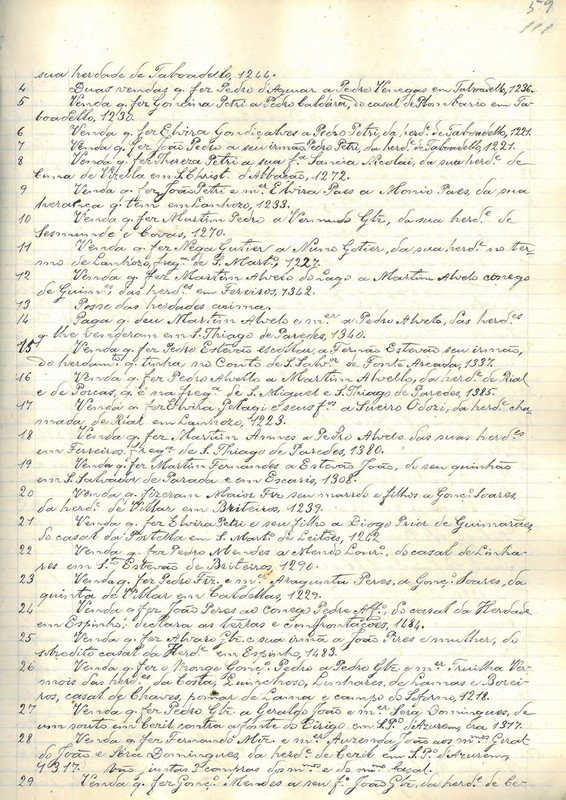 59
111
sua herdade de Taboadello, 1244.
4 Duas vendas q. fez Pedro d'Aguiar a Pedro Venegas em Taboadello, 1236.
5 Venda q. fez Gontina Petri a Pedro Caldeira, do casal de Plombario em Ta-
boadello, 1230
6 Venda q. fez Elvira Gondiçalves a Pedro Petri, da herd.e de Taboadello, 1221.
7 Venda q. fez João Pedro a seu irmão Pedro Petri, da herd.e de Taboadello, 1221.
8 Venda q. fez Thereza Petri a sua f.a Sancia Nicolai, da sua herd.e de
de Vizella em S. Christ. d'Abbação, 1272.
9 Venda q. fez João Petri e m.er Elvira Paes a Monio Paes, da sua
herança q. tem em Lanhozo, 1233.
10 Venda q. fez Martim Pedro a Vermudo Glz., da sua herd.e de
Sesmunde e Covas, 1270.
11 Venda q. fez Nega Gutier a Nuno Gotier, da sua herd.e no ter-
mo de Lanhozo, freg.a de S. Mart.o, 1227.
12 Venda q. fez Martim Alvelo do Lago a Martim Alvelo conego
de Guim.es das herd.es em Ferviros, 1342.
13 Posse das herdades acima.
14 Paga q. deu Martim Alvelo e m.er a Pedro Alvelo, das herd.es
q. lhe venderam em S. Thiago de Paredes, 1340.
15 Venda q. fez Pedro Estevão escolar, a Fernão Estevão seu irmão,
do herdam.to q. tinha no Couto de S. Salv.or de Fonte Arcada, 1337.
16 Venda q. fez Pedro Alvello a Martim Alvello, da herd.e de Rial
e de Torcas, q. é na freg.a de S. Miguel e S. Thiago de Paredes, 1385.
17 Venda q. fez Elvira Pelagi e seus f.os a Sueiro Odori, da herd.e cha-
mada de Rial em Lanhozo, 1223.
18 Venda q. fez Martim Annes a Pedro Alvelo das suas herd.es
em Ferreiros, freg.a de S. Thiago de Paredes, 1380.
19 Venda q. fez Martim Fernandes a Estevão João, do seu quinhão
em S. Salvador de Parada e em Escaris, 1308.
20 Venda q. fizeram Maior Frz. seu marido e filhos a Gonç.o Soares,
da herd.e de V.a Mar em Briteiros, 1239.
21 Venda q. fez Elvira Petri e seu filho a Diogo Prior de Guimarães,
do casal da Portella em S. Mart.o de Leitões, 1262
22 Venda q. fez Pedro Mendes a Mendo Lour.o, do casal de Linha-
res em S.to Estevão de Briteiros, 1290.
23 Venda q. fez Pedro Frz. e m.er Aragunta Peres, a Gonç.o Soares, da
quinta de V.a Mar em Caldellas, 1229.
24 Venda q. fez João Peres ao conego Pedro Aff.o, do casal da Herdade
em Espinho; declara as terras e confrontações, 1484.
25 Venda q. fez Alvaro Glz. e sua irmã a João Pires e mulher, do
sobredito casal da Herd.e em Espinho, 1483.
26 Venda q. fez o Monge Gonç.o Pedro a Pedro Glz. e m.er Truilha Ver-
mois das herd.es da Costa, Quinchoso, Linhares, de Lamas e Borei-
ros, casal de Chaves, pomar de Lama e campo do Souto, 1218.
27 Venda q. fez Pedro Glz. a Geraldo João e m.er Sera Domingues, de
um souto em Cezil contra a fonte do Bisigo em S. P.o d'Azurem, era 1377.
28 Venda q. fez Fernando Miz. e m.er Auzenda João aos m.mos Geral-
do João e Sera Domingues, da herd.e de Cezil em S. P.o d'Azurem,
1317. Vão juntas 3 compras dos m.mos e do m.mo casal.
29 Venda q. fez Gonç.o Mendes a seu f.o João Glz. da herd.e de Ce-